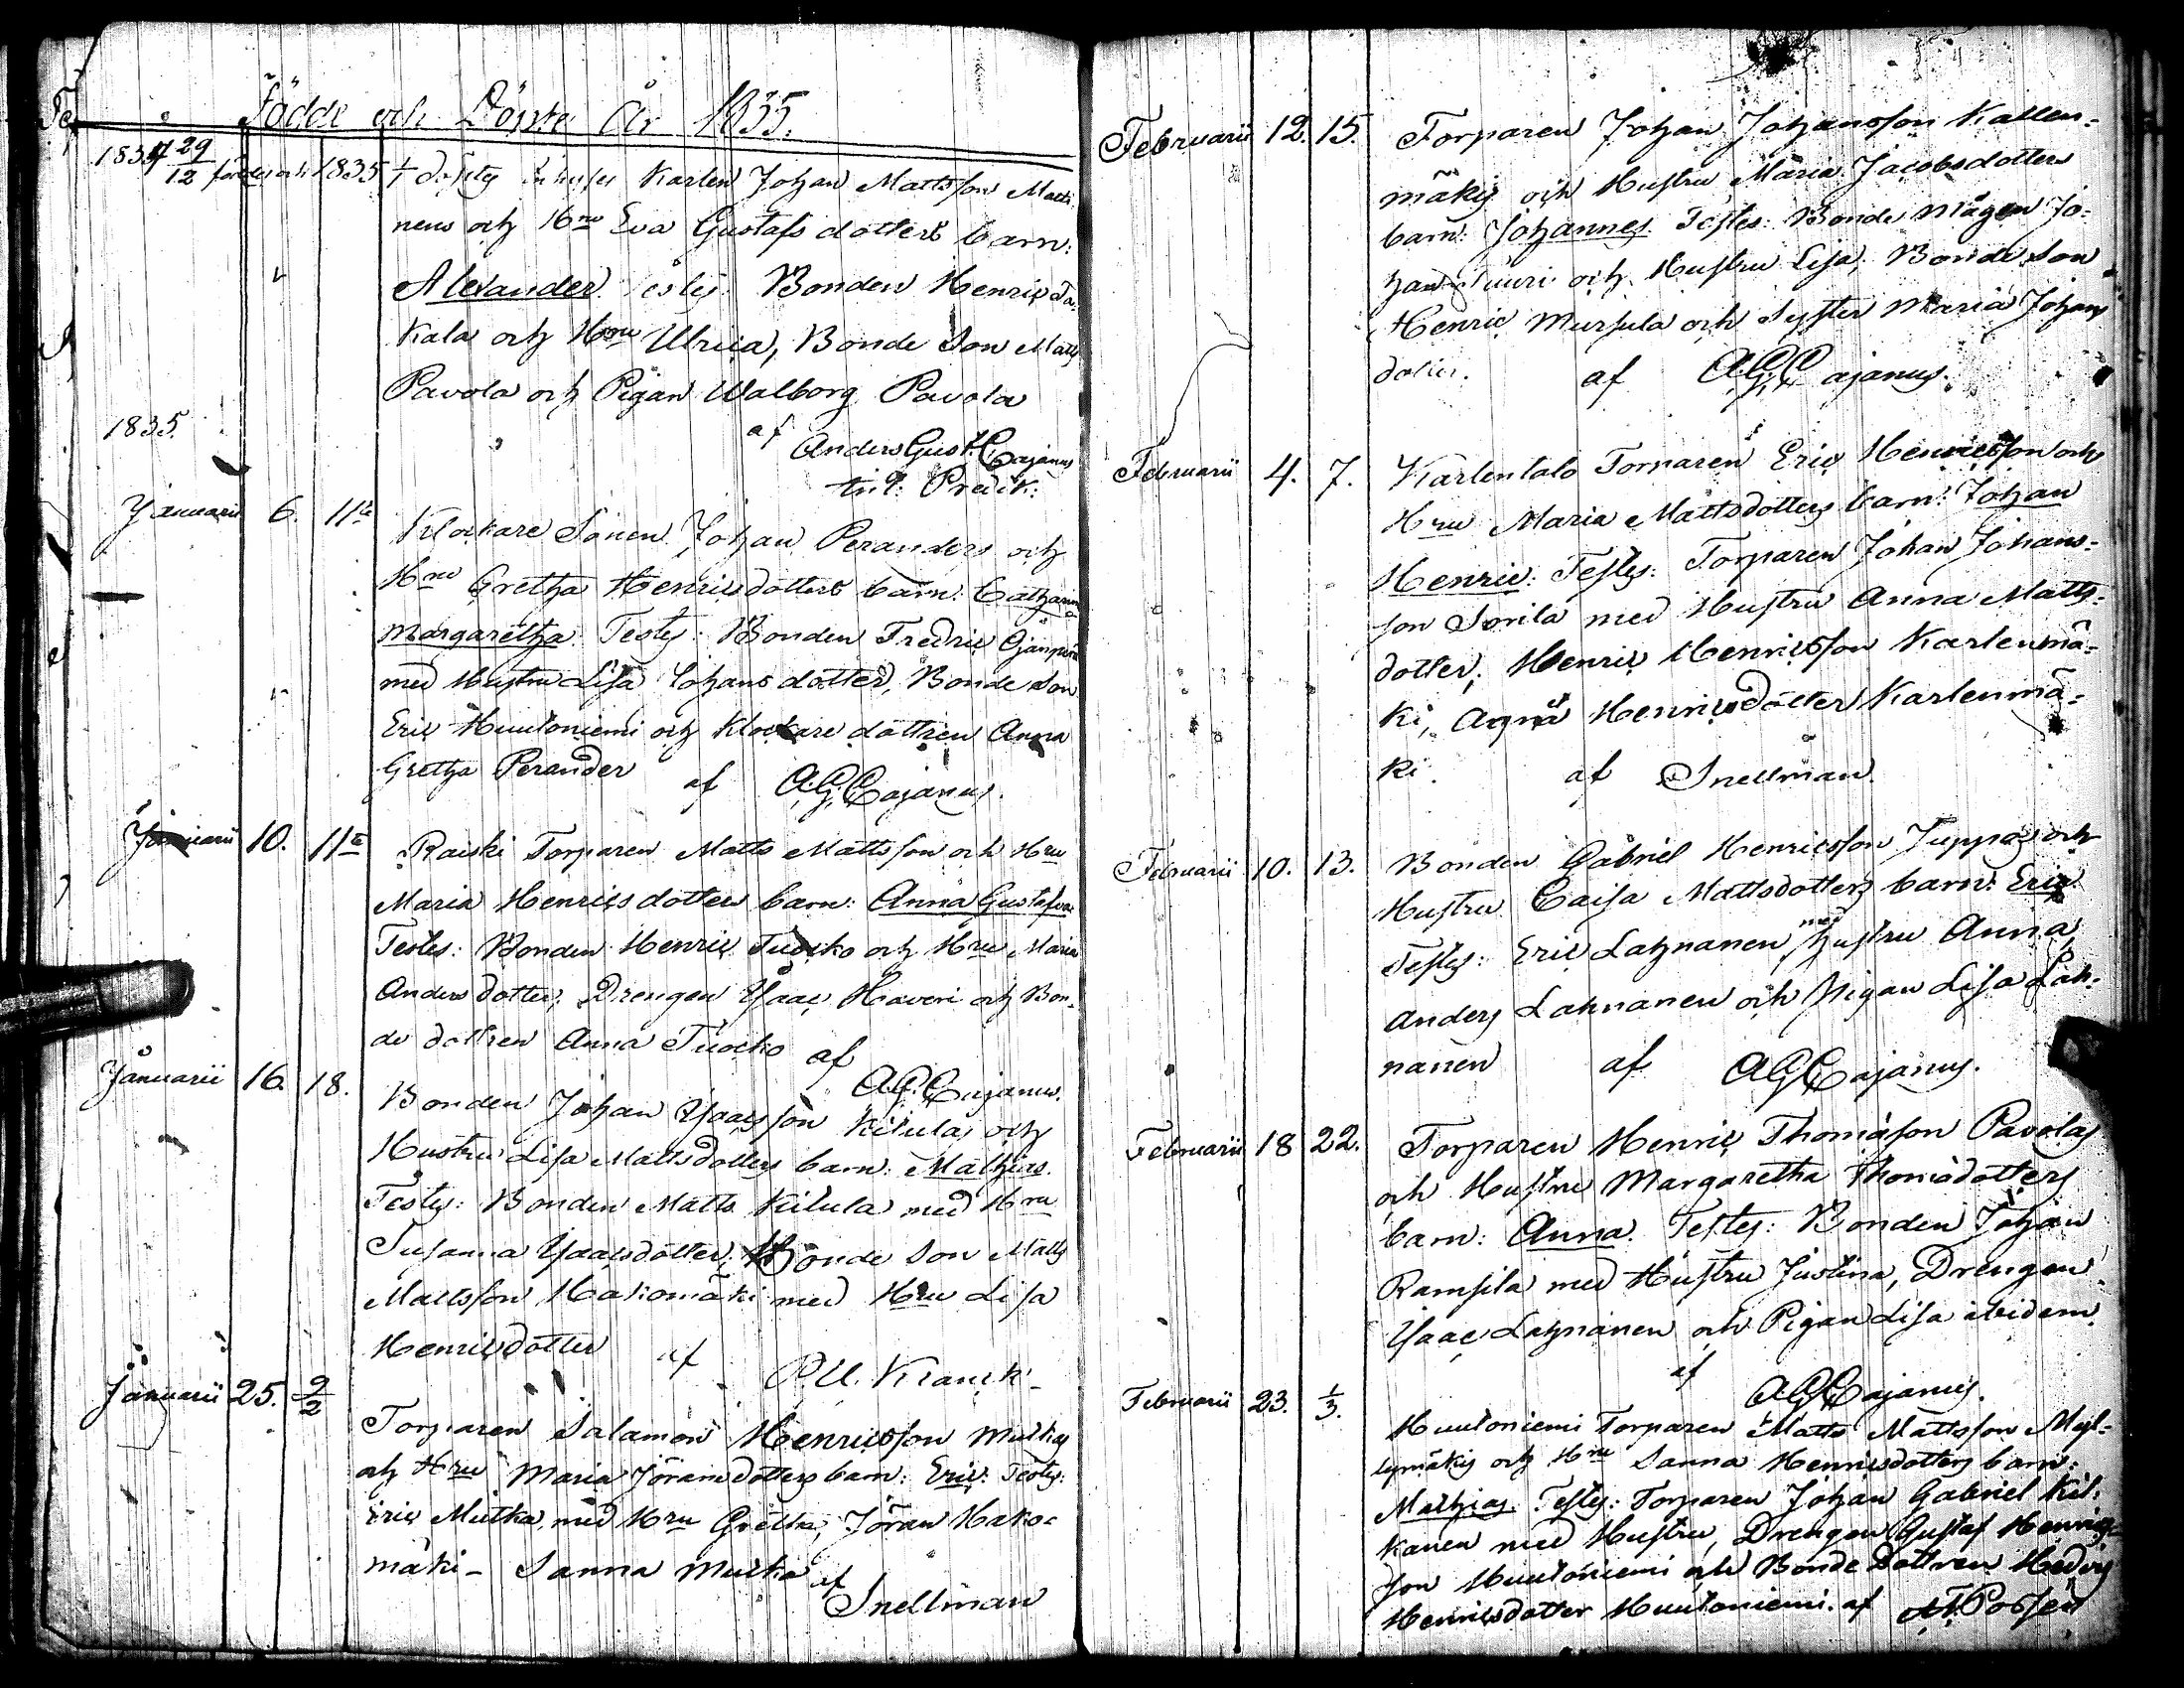 Födde och Döpte År 1835.
1834 29/12 födder och 1835 1/1 döptes Inhyses Karlen Johan Mattsson Matti
nens och H:ru Eva Gustafs dotters barn:
Alexander Testes: Bonden Henric
kala och H:ru Ulrica, Bonde Son Matts
Pavola och Pigan Walborg Pavola
1835.
af Anders Gust. Cajanus
Predik:
Januarii 6. 11te Klockare Sonen Johan Peranders och
H:ru Gretha Henricsdotters barn: Catharina
Margaretha. Testes: Bonden Fredric
med Hustru Lisa Johans dotter, Bonde Son
Eric Huutoniemi och Klockare dottren Anna
Gretha Perander af A.G. Cajanus.
Januarii 10. 11te Raiski Torparen Matts Mattsson och H:ru
Maria Henrics dotters barn: Anna Gustafva
Testes: Bonden Henric Tuocko och H:ru Maria
Anders dotter, Drengen Isaac Haveri och Bon-
de dottren Anna Tuocko af
A.G. Cajanus.
Januarii 16. 18. Bonden Johan Isacsson Kilula och
Hustru Lisa Mattsdotters barn: Mathias.
Testes: Bonden Matts Kilula med H:ru
Susanna Isaacsdotter, Bonde Son Matts
Mattsson Hakomäki med H:ru Lisa
Henricsdotter af
P.U. Kranck
Januarii 25. 2/2 Torparen Salamon Henricsson Mutkas
och H:ru Maria Jöransdotters barn: Eric: Testes:
Eric Mutka, med H:ru Gretha, Jöran Hako-
mäki - Sanna Mutka af
Snellman
Februarii 12. 15. Torparen Johan Johansson Kallen-
mäkis och Hustru Maria Jacobsdotters
barn: Johannes. Testes: Bonde Mågen Jo-
han Tuuri och Hustru Lisa, Bonde Son
Henric Mursula och Syster Maria Johans
dotter. af A.G. Cajanus.
Februarii 4. 7. Karlentalo Torparen Eric Henricsson och
H:ru Maria Mattsdotters barn: Johan
Henric: Testes: Torparen Johan Johans-
son Sorila med Hustru Anna Matts-
dotter, Henric Henricsson Karlenmä-
ki, Agna Henricsdotter Karlenmä-
ki. af Snellman.
Februarii 10. 13. Bonden Gabriel Henricsson Juppas och
Hustru Caisa Mattsdotters barn: Eric.
Testes: Eric Lahnanen med Hustru Anna,
Anders Lahnanen och Pigan Lisa Lah-
nanen af A.G. Cajanus.
Februarii 18 22. Torparen Henric Thomasson Pavolas
och Hustru Margaretha Thomasdotters
barn: Anna. Testes: Bonden Johan
Ramsila med Hustru Justina, Drengen
Isaac Lahnanen och Pigan Lisa ibidem.
af
A.G. Cajanus.
Februarii 23. 1/3. Huutoniemi Torparen Matts Mattsson Myl-
lymäkis och H:ru Sanna Henricsdotters barn:
Mathias. Testes: Torparen Johan Gabriel Kil-
kanen med Hustru, Drengen Gustaf Henrics-
son Huutoniemi och Bonde Dottren Hedvig
Henricsdotter Huutoniemi. af